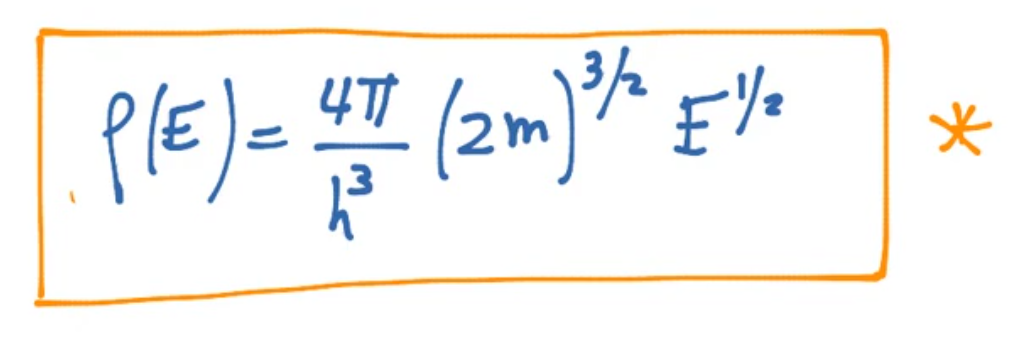 ρ(E) = 4π/h³ (2m)^3/2 E^1/2 *